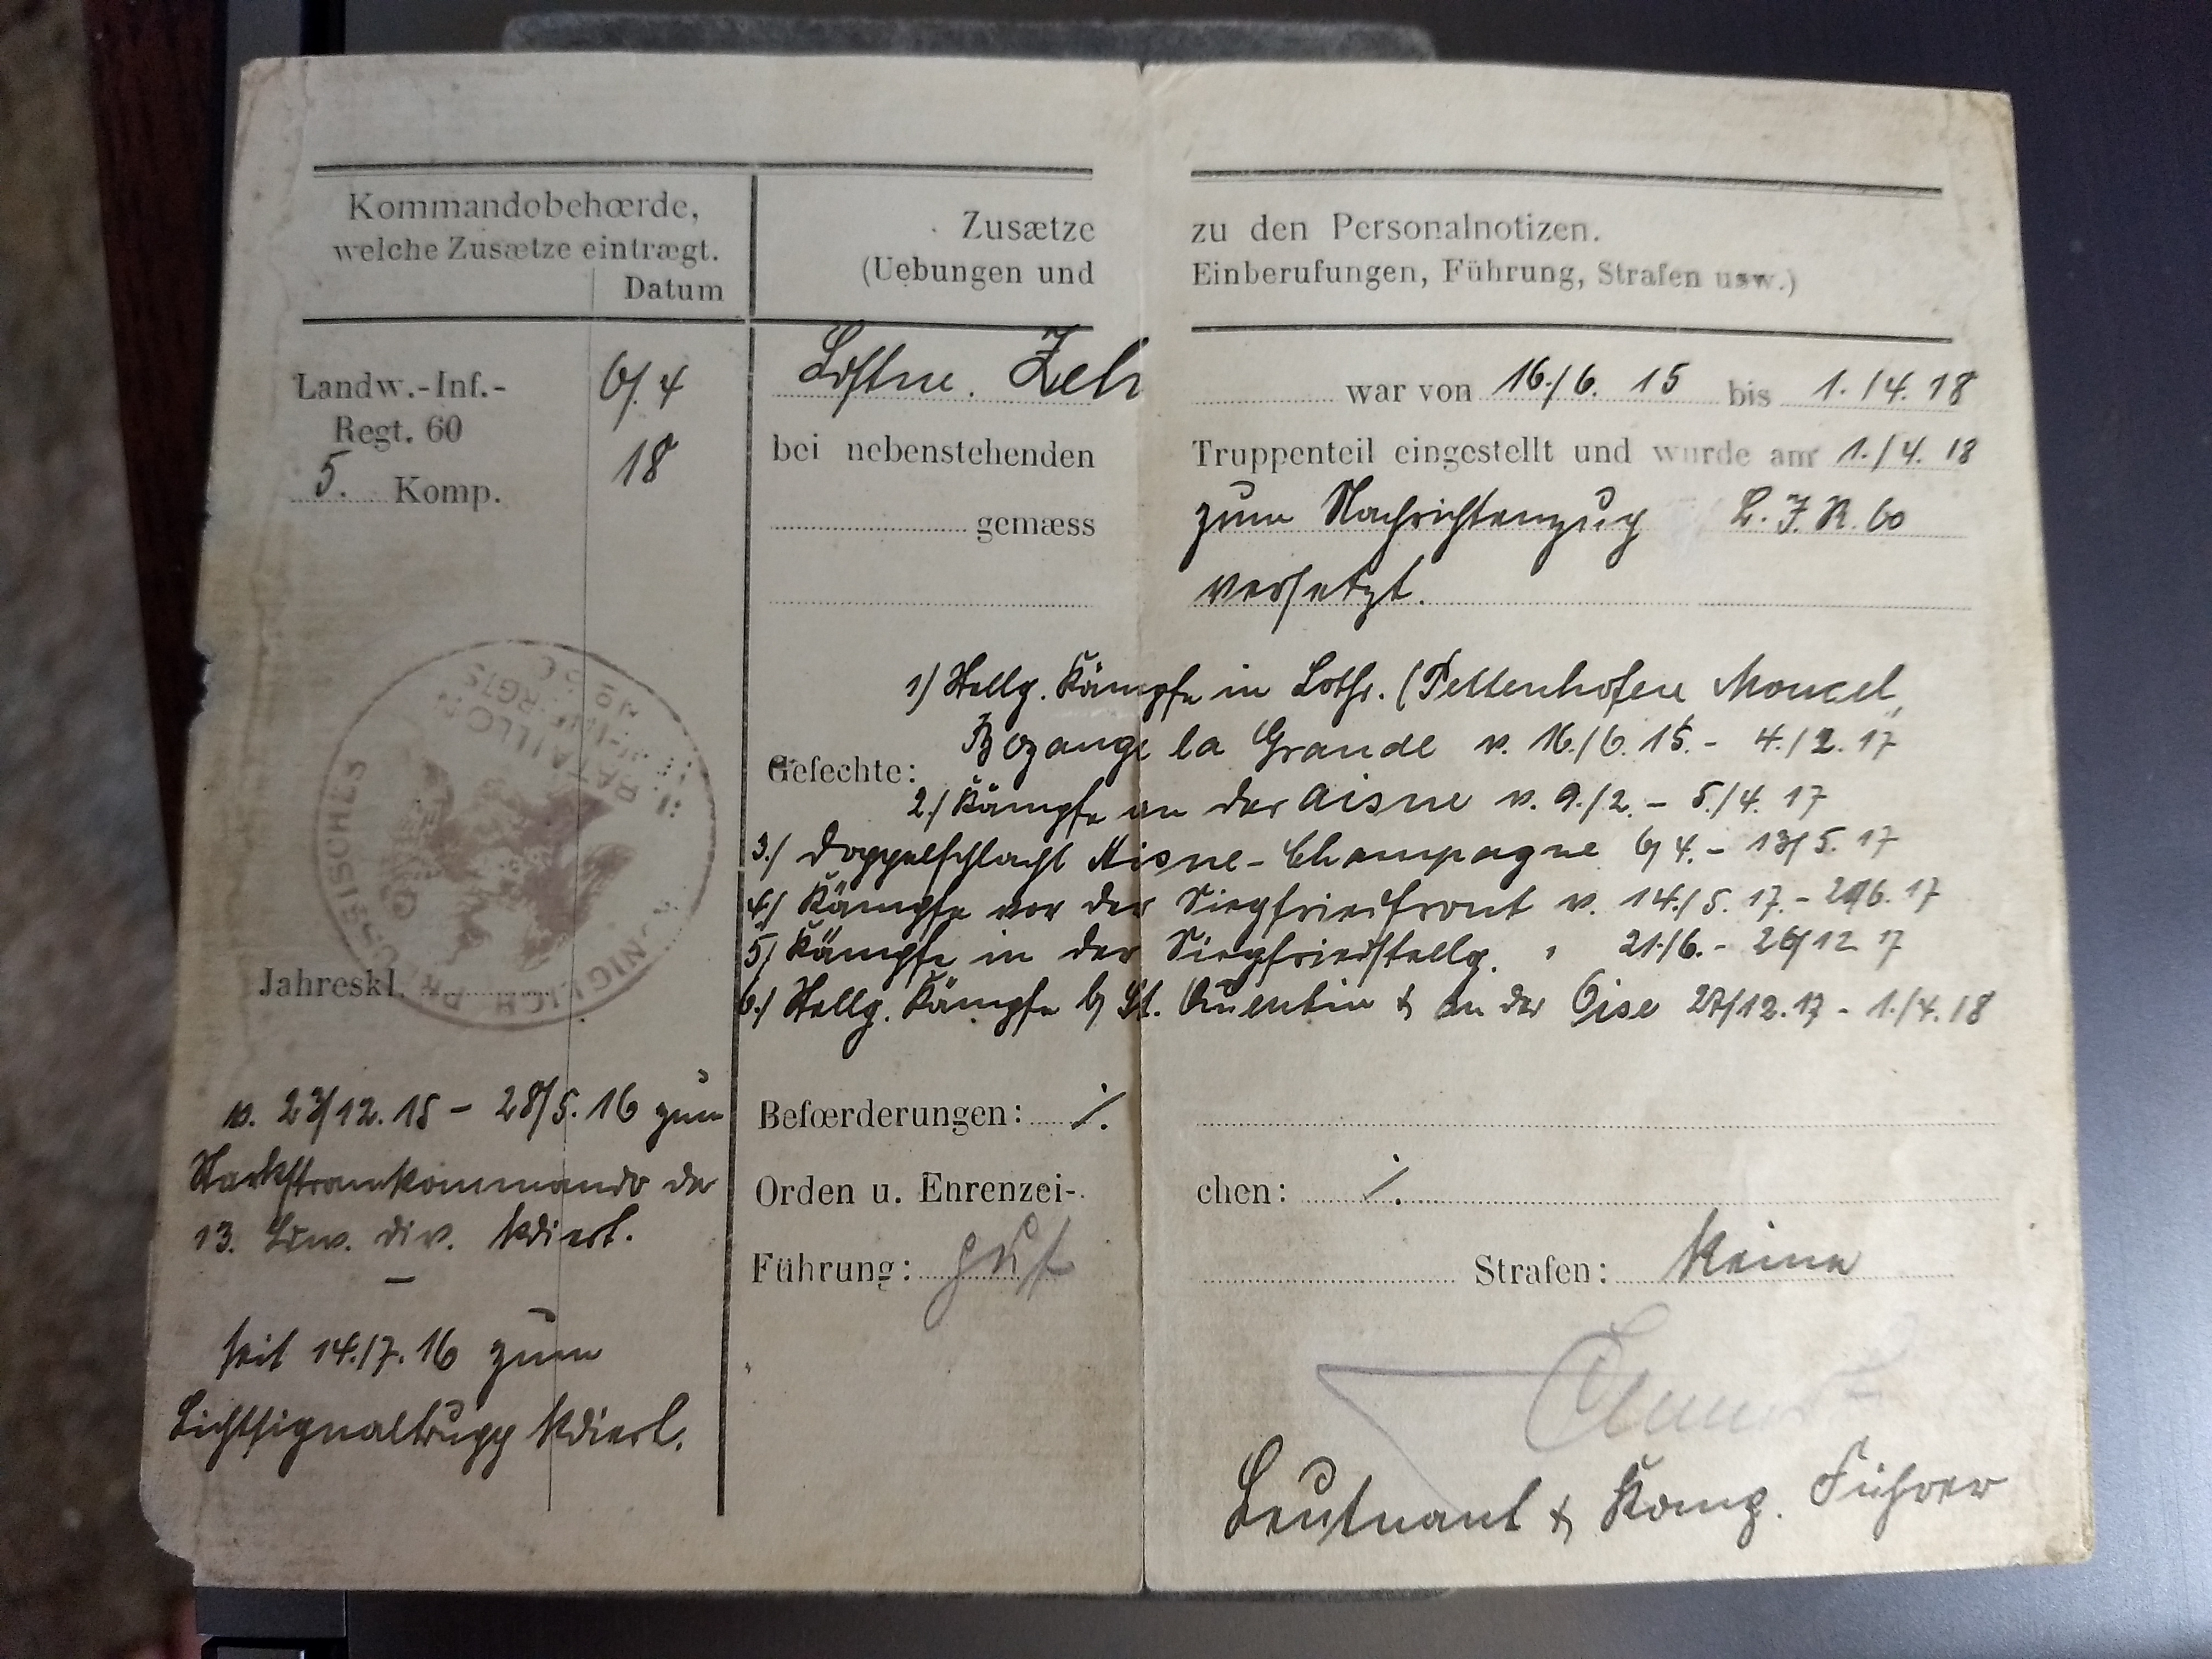 Kommandobehœrde,
welche Zusætze eintrægt.
Datum
Zusætze zu den Personalnotizen.
(Uebungen und Einberufungen, Führung, Strafen usw.)
Landw.-Inf.-
Regt. 60
5. Komp.
6/4
18
Ldstne. Zeh war von 16./6. 15 bis 1./4. 18
bei nebenstehenden Truppenteil eingestellt und wurde am 1./4. 18
gemæss zum Nachrichtenzug L. J. R. 60
versetzt.
Gefechte:
1) Stellg. Kämpfe in Lothr. (Pettenhofen Moncel,
Bezange la Grande v. 16./6. 15. - 4./2. 17
2./ Kämpfe an der Aisne v. 9./2. - 5./4. 17
3./ Doppelschlacht Aisne-Champagne 6/4. - 13/5. 17
4/ Kämpfe vor der Siegfriedfront v. 14./5. 17. - 6. 17
5/ Kämpfe in der Siegfriedstellg. " 21./6. - 26/12 17
6./ Stellg. Kämpfe b/ St. Quentin & an der Oise 27/12. 17 - 1./4. 18
KÖNIGLICH PREUSSISCHES
BATAILLON
Jahreskl.
v. 23/12. 15 - 28/5. 16 zum
Starkstromkommando der
13. Ldw. div. kdiert.
seit 14./7. 16 zum
Lichtsignaltrupp kdiert.
Befœrderungen: ./.
Orden u. Ehrenzeichen: ./.
Führung: gut Strafen: keine
Leutnant & Komp. Führer